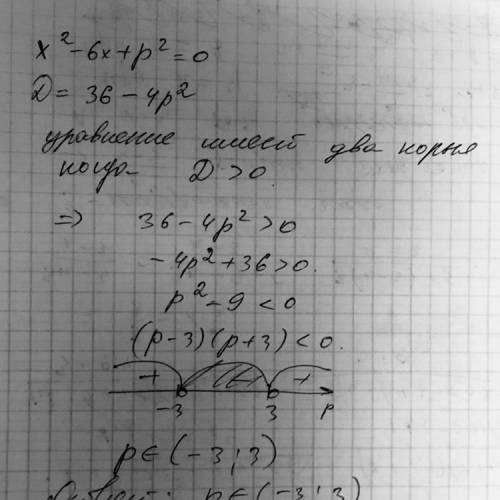 x² - 6x + p² = 0
D = 36 - 4p²
уравнение имеет два корня
когда D > 0.
⇒ 36 - 4p² > 0
- 4p² + 36 > 0.
p² - 9 < 0
(p-3)(p+3) < 0.
+ - +
-3 3 p
p ∈ (-3; 3)
Ответ: p ∈ (-3; 3)